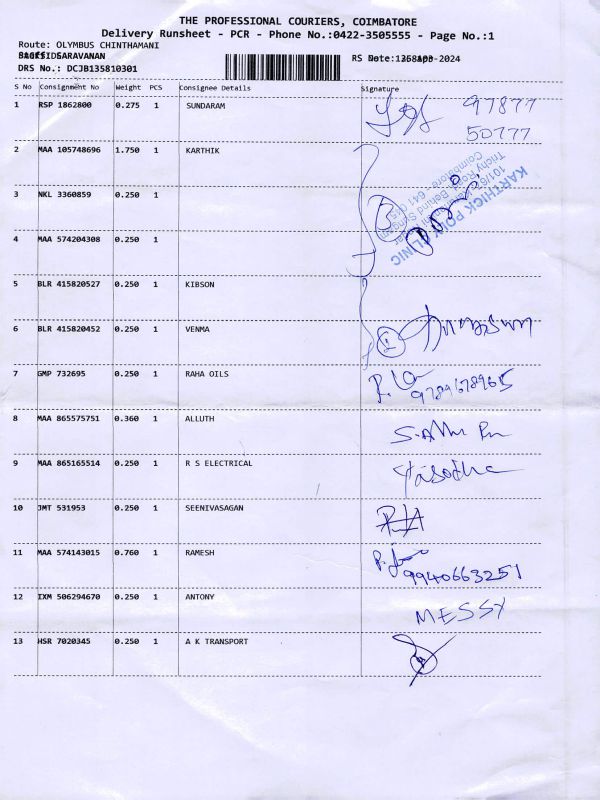 THE PROFESSIONAL COURIERS, COIMBATORE
Delivery Runsheet - PCR - Phone No.:0422-3505555 - Page No.:1
Route: OLYMBUS CHINTHAMANI
SARAVANAN
DRS No.: DCJB135810301
RS Date: -2024
S No Consignment No Weight PCS Consignee Details Signature
1 RSP 1862800 0.275 1 SUNDARAM 97877
50777
2 MAA 105748696 1.750 1 KARTHIK
KARTHICK POLY CLINIC
Trichy Road, Behind Singam
Coimbatore - 641 015
3 NKL 3360859 0.250 1
4 MAA 574204308 0.250 1
5 BLR 415820527 0.250 1 KIBSON
6 BLR 415820452 0.250 1 VENMA
7 GMP 732695 0.250 1 RAHA OILS
9789678965
8 MAA 865575751 0.360 1 ALLUTH
9 MAA 865165514 0.250 1 R S ELECTRICAL Yasodha
10 JMT 531953 0.250 1 SEENIVASAGAN
11 MAA 574143015 0.760 1 RAMESH
9940663251
12 IXM 506294670 0.250 1 ANTONY MESSY
13 HSR 7020345 0.250 1 A K TRANSPORT